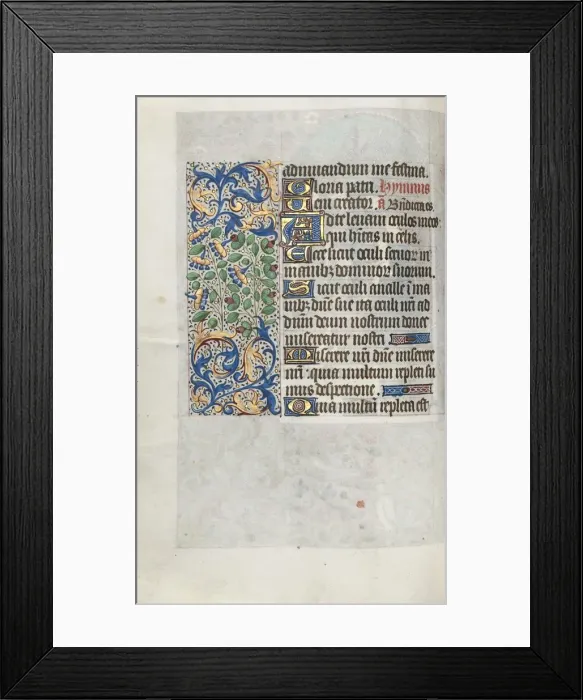 adiuuandum me festina.
Gloria patri. Hymnus
Ueni creator. ã. Bñdicta es.
Ad te leuaui oculos meos
qui hītas in celis.
Ecce sicut oculi seruorum in
manibz dominor suorum.
Sicut oculi ancille ĩ ma
nibz dñe sue ita oculi nr̃i ad
dñum deum nostrum donec
misereatur nostri
Miserere nr̃i dñe miserere
nr̃i : quia multum repleti su
mus despectione.
Quia multũ repleta est